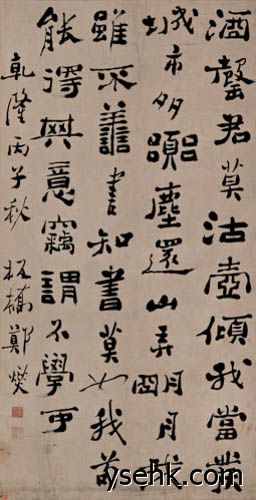 酒罄君莫沽壺傾我當發
城市多囂塵還山弄明月
雖不善書知書莫如我苟
能得其意竊謂不學可
乾隆丙子秋 板橋鄭燮
ysehk.com